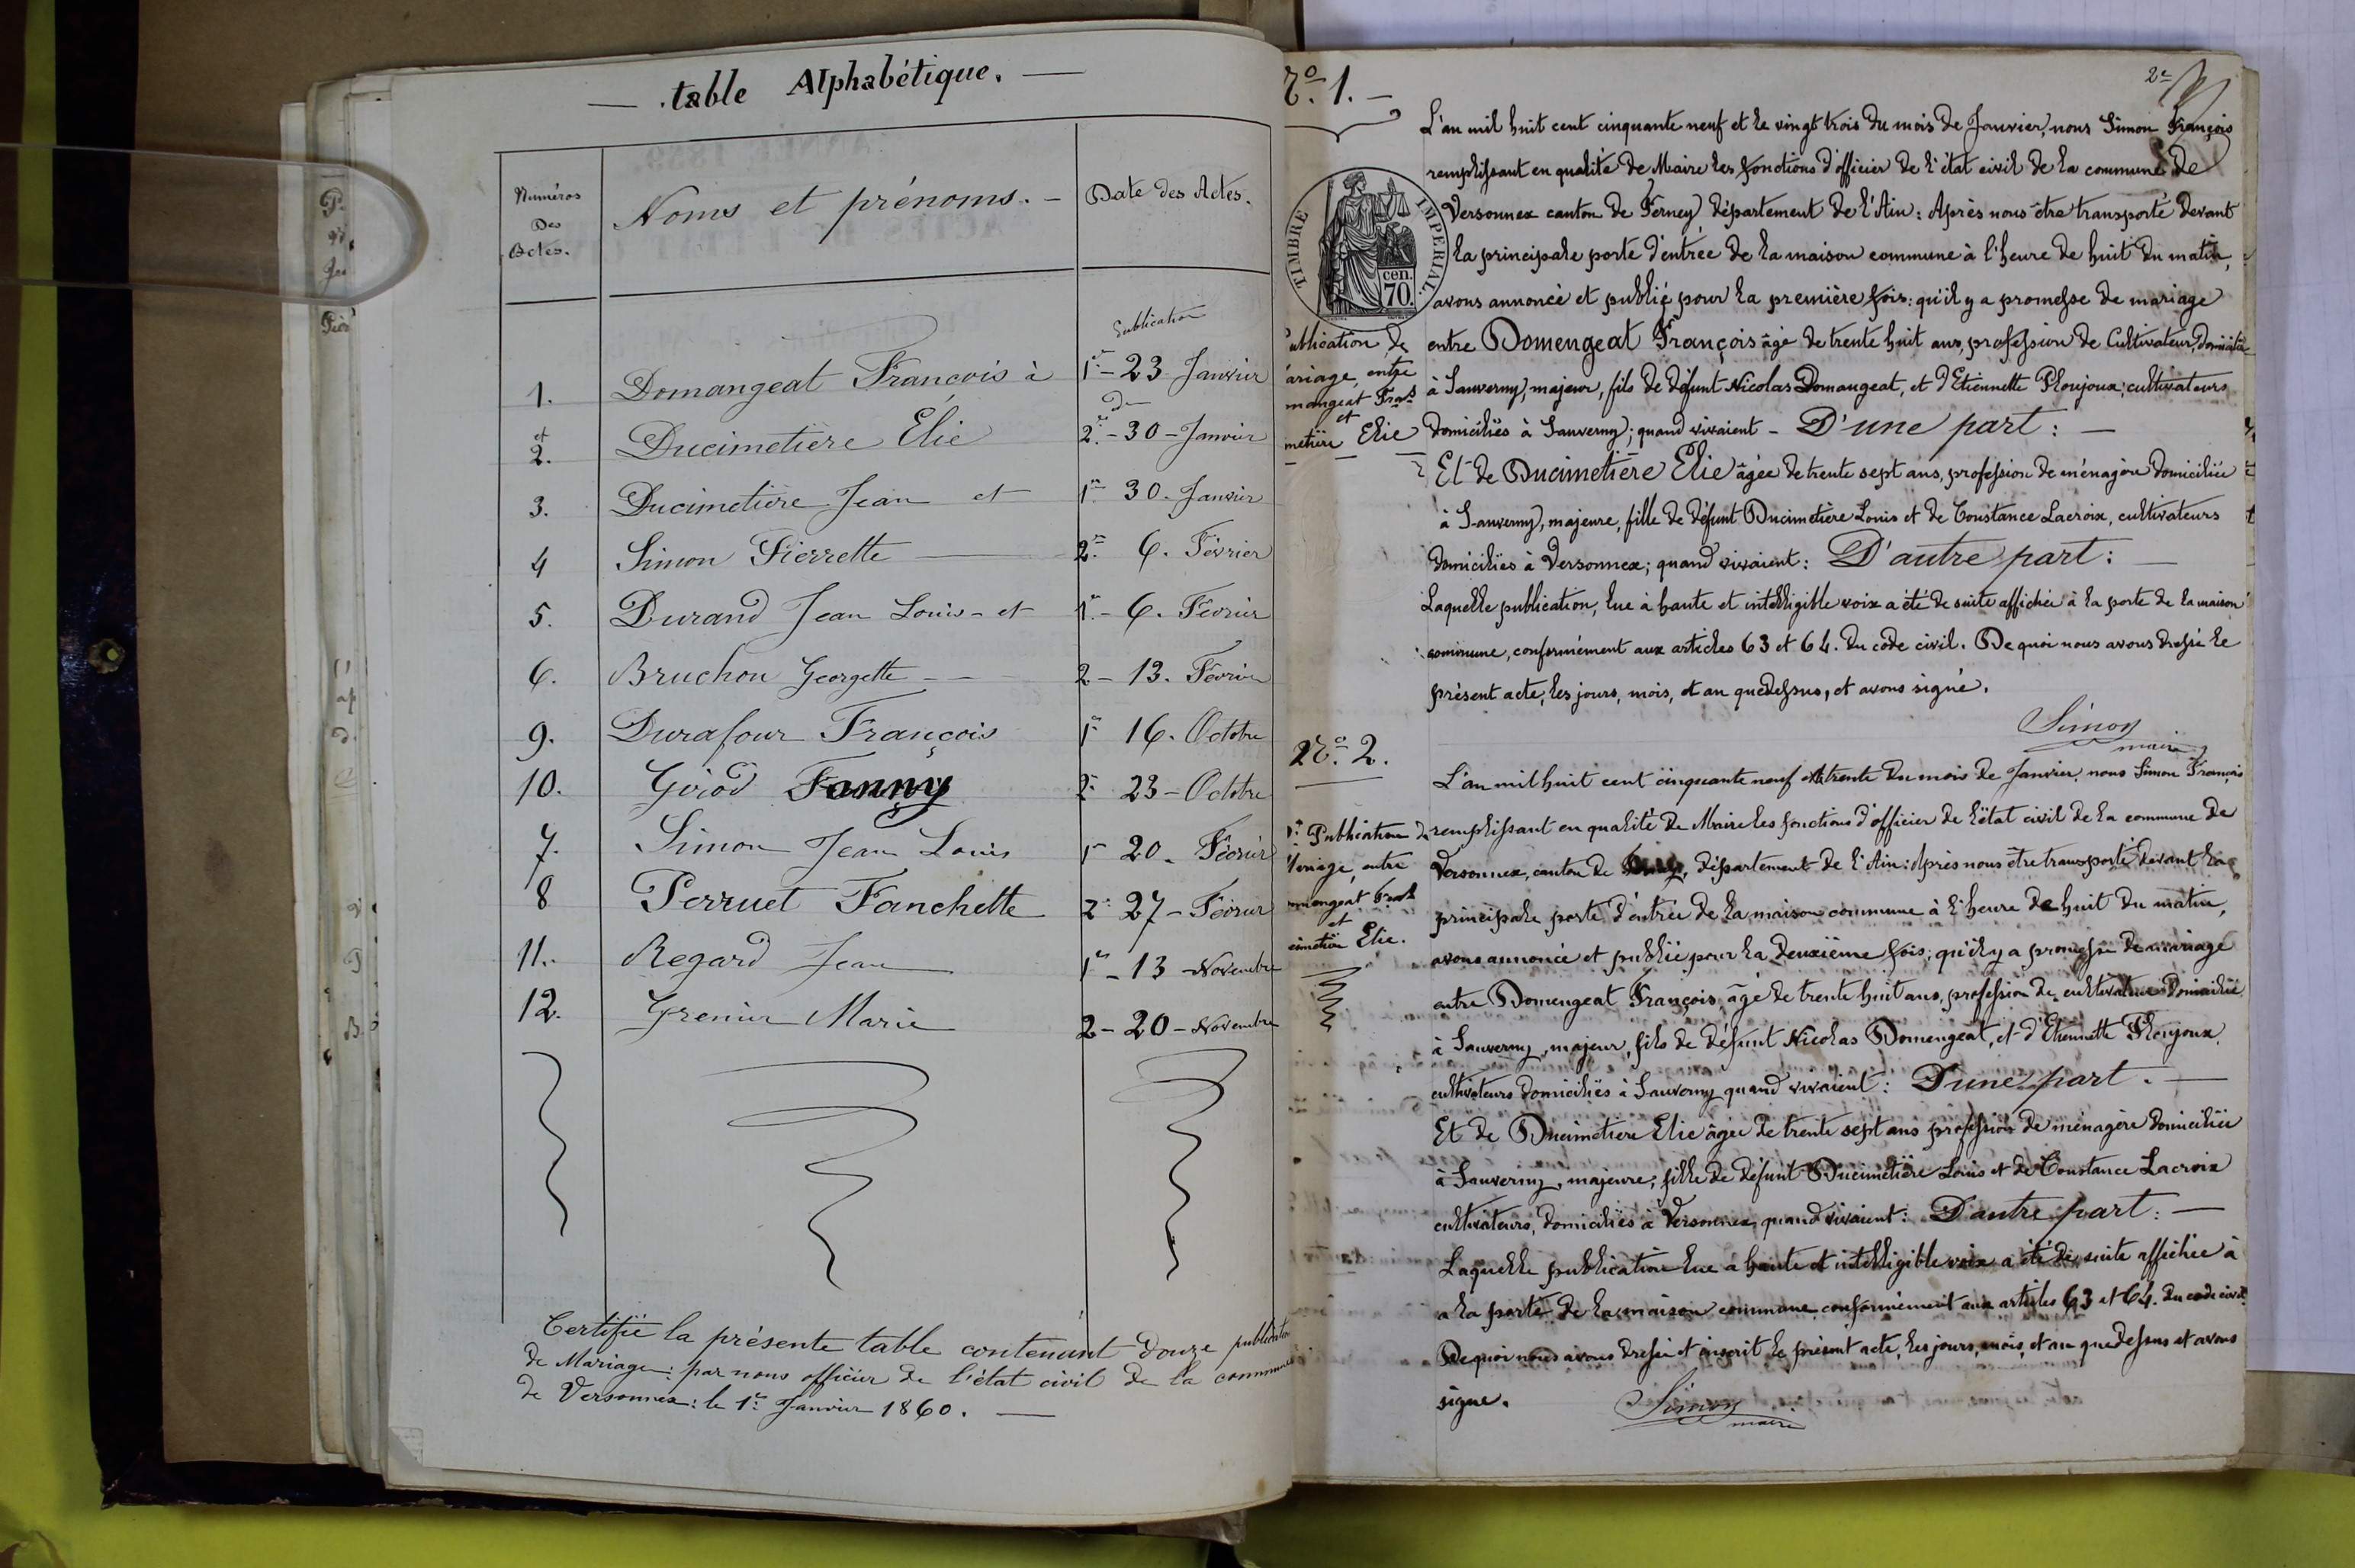 table Alphabétique.
Numéros Des Actes.
Noms et prénoms.
Date des Actes.
Publication
1. Domangeat François à 1re - 23 Janvier
et 2. Ducimetière Élie 2e - 30 - Janvier
3. Ducimetière Jean et 1re 30. Janvier
4 Simon Pierrette 2e 6. Février
5. Durand Jean Louis - et 1re - 6. Février
6. Bruchon Georgette 2 - 13. Février
9. Durafour François 1re 16. Octobre
10. Girod Fanny 2e 23 - Octobre
7. Simon Jean Louis 1re 20. Février
8 Perruet Fanchette 2e 27 - Février
11. Regard Jean 1re - 13 - Novembre
12. Grenier Marie 2 - 20 - Novembre
Certifié la présente table contenant Douze publication
de Mariage: par nous officier de l'état civil de la commune
de Versonnex: le 1er Janvier 1860.
No. 1.
2e
TIMBRE IMPERIAL.
cen.
70.
ublication de
ariage, entre
mangeat Frçois
et
metière Elie
L'an mil huit cent cinquante neuf et le vingt trois du mois de Janvier, nous Simon François
remplissant en qualité de Maire les fonctions d'officier de l'état civil de la commune de
Versonnex canton de Ferney département de l'Ain: Après nous être transporté devant
la principale porte d'entrée de la maison commune à l'heure de huit du matin,
avons annoncé et publié pour la première fois: qu'il y a promesse de mariage
entre Domengeat François âgé de trente huit ans, profession de Cultivateur, domicilié
à Sauverny, majeur, fils de défunt Nicolas Domangeat, et d'Etiennette Ploujoux, cultivateurs
domiciliés à Sauverny; quand vivaient - D'une part:
Et de Ducimetière Elie âgée de trente sept ans, profession de ménagère domiciliée
à Sauverny, majeure, fille de défunt Ducimetière Louis et de Constance Lacroix, cultivateurs
domiciliés à Versonnex; quand vivaient: D'autre part:
Laquelle publication, lue à haute et intelligible voix a été de suite affichée à la porte de la maison
commune, conformément aux articles 63 et 64. du code civil. De quoi nous avons dressé le
présent acte, les jours, mois, et an quedessus, et avons signé.
Simon
maire
No. 2.
Publication de
riage, entre
mengeat Frçois
et
cimetière Elie.
L'an mil huit cent cinquante neuf et le trente du mois de Janvier, nous Simon François
remplissant en qualité de Maire les fonctions d'officier de l'état civil de la commune de
Versonnex, canton de département de l'Ain: Après nous être transporté devant la
principale porte d'entrée de la maison commune à l'heure de huit du matin,
avons annoncé et publié pour la deuxième fois; qu'il y a promesse de mariage
entre Domengeat François, âgé de trente huit ans, profession de cultivateur domicilié
à Sauverny, majeur, fils de défunt Nicolas Domengeat, et d'Etiennette Ploujoux,
cultivateurs domiciliés à Sauverny quand vivaient: D'une part.
Et de Ducimetière Elie âgée de trente sept ans profession de ménagère domiciliée
à Sauverny, majeure, fille de défunt Ducimetière Louis et de Constance Lacroix
cultivateurs, domiciliés à Versonnex, quand vivaient: D'autre part:
Laquelle publication lue à haute et intelligible voix a été de suite affichée à
a la porte de la maison commune conformément aux articles 63 et 64. du code civil.
De quoi nous avons dressé et inscrit le présent acte, les jours, mois, et an quedessus et avons
signé.
Simon
maire